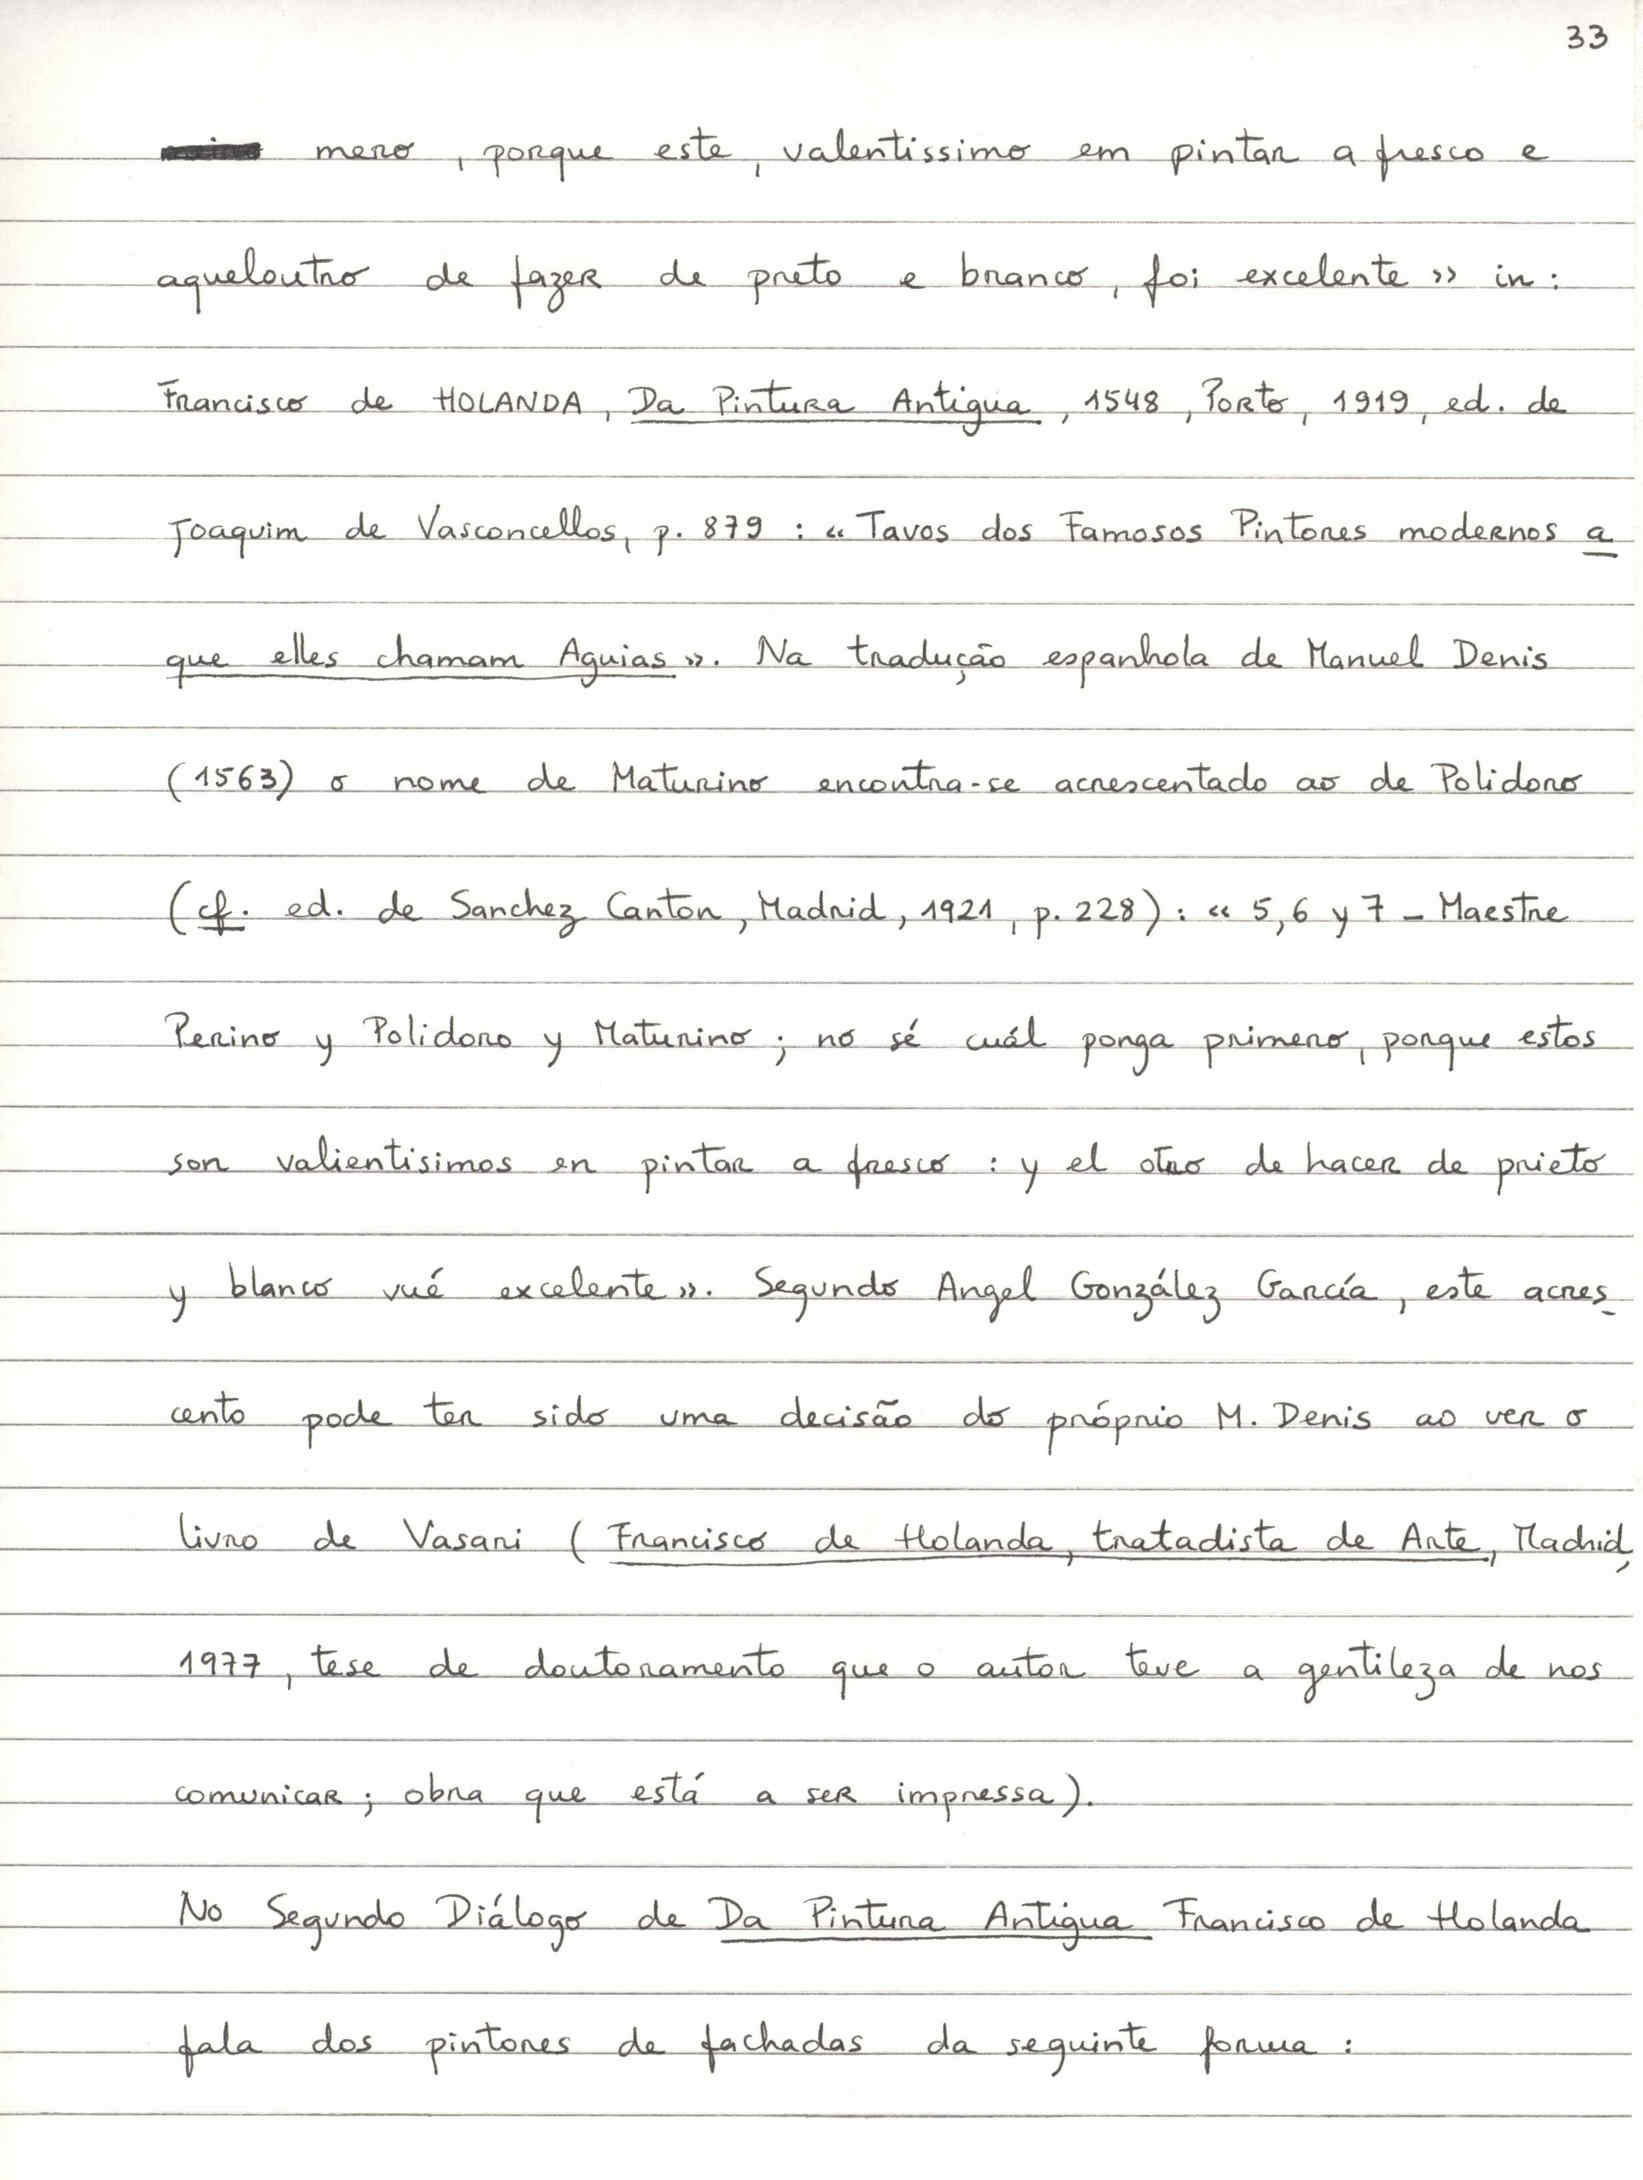 33
mero, porque este, valentissimo em pintar a fresco e
aqueloutro de fazer de preto e branco, foi excelente » in :
Francisco de HOLANDA, Da Pintura Antigua, 1548, Porto, 1919, ed. de
Joaquim de Vasconcellos, p. 879 : « Tavos dos Famosos Pintores modernos a
que elles chamam Aguias ». Na tradução espanhola de Manuel Denis
(1563) o nome de Maturino encontra-se acrescentado ao de Polidoro
(cf. ed. de Sanchez Canton, Madrid, 1921, p. 228) : « 5, 6 y 7 - Maestre
Perino y Polidoro y Maturino ; no sé cuál ponga primero, porque estos
son valientisimos en pintar a fresco : y el otro de hacer de prieto
y blanco vué excelente ». Segundo Angel González García, este acres-
cento pode ter sido uma decisão do próprio M. Denis ao ver o
livro de Vasari ( Francisco de Holanda, tratadista de Arte, Madrid,
1977, tese de doutoramento que o autor teve a gentileza de nos
comunicar ; obra que está a ser impressa ).
No Segundo Diálogo de Da Pintura Antigua Francisco de Holanda
fala dos pintores de fachadas da seguinte forma :